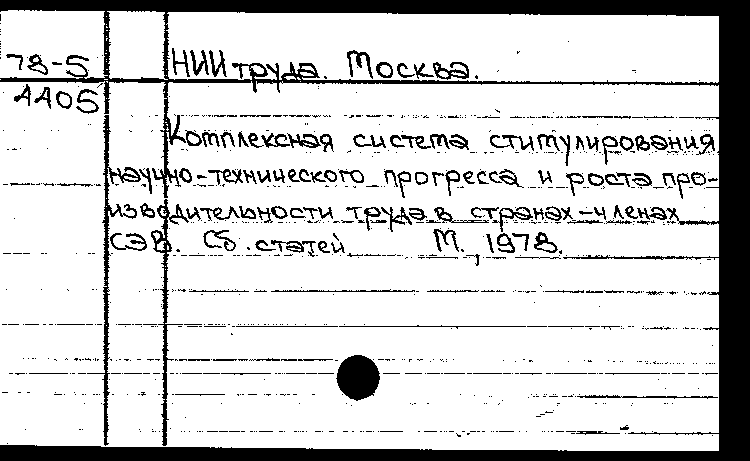 78-5 НИИ труда. Москва.
4405
Комплексная система стимулирования
научно-технического прогресса и роста про-
изводительности труда в странах-членах
СЭВ. Сб. статей. М., 1978.